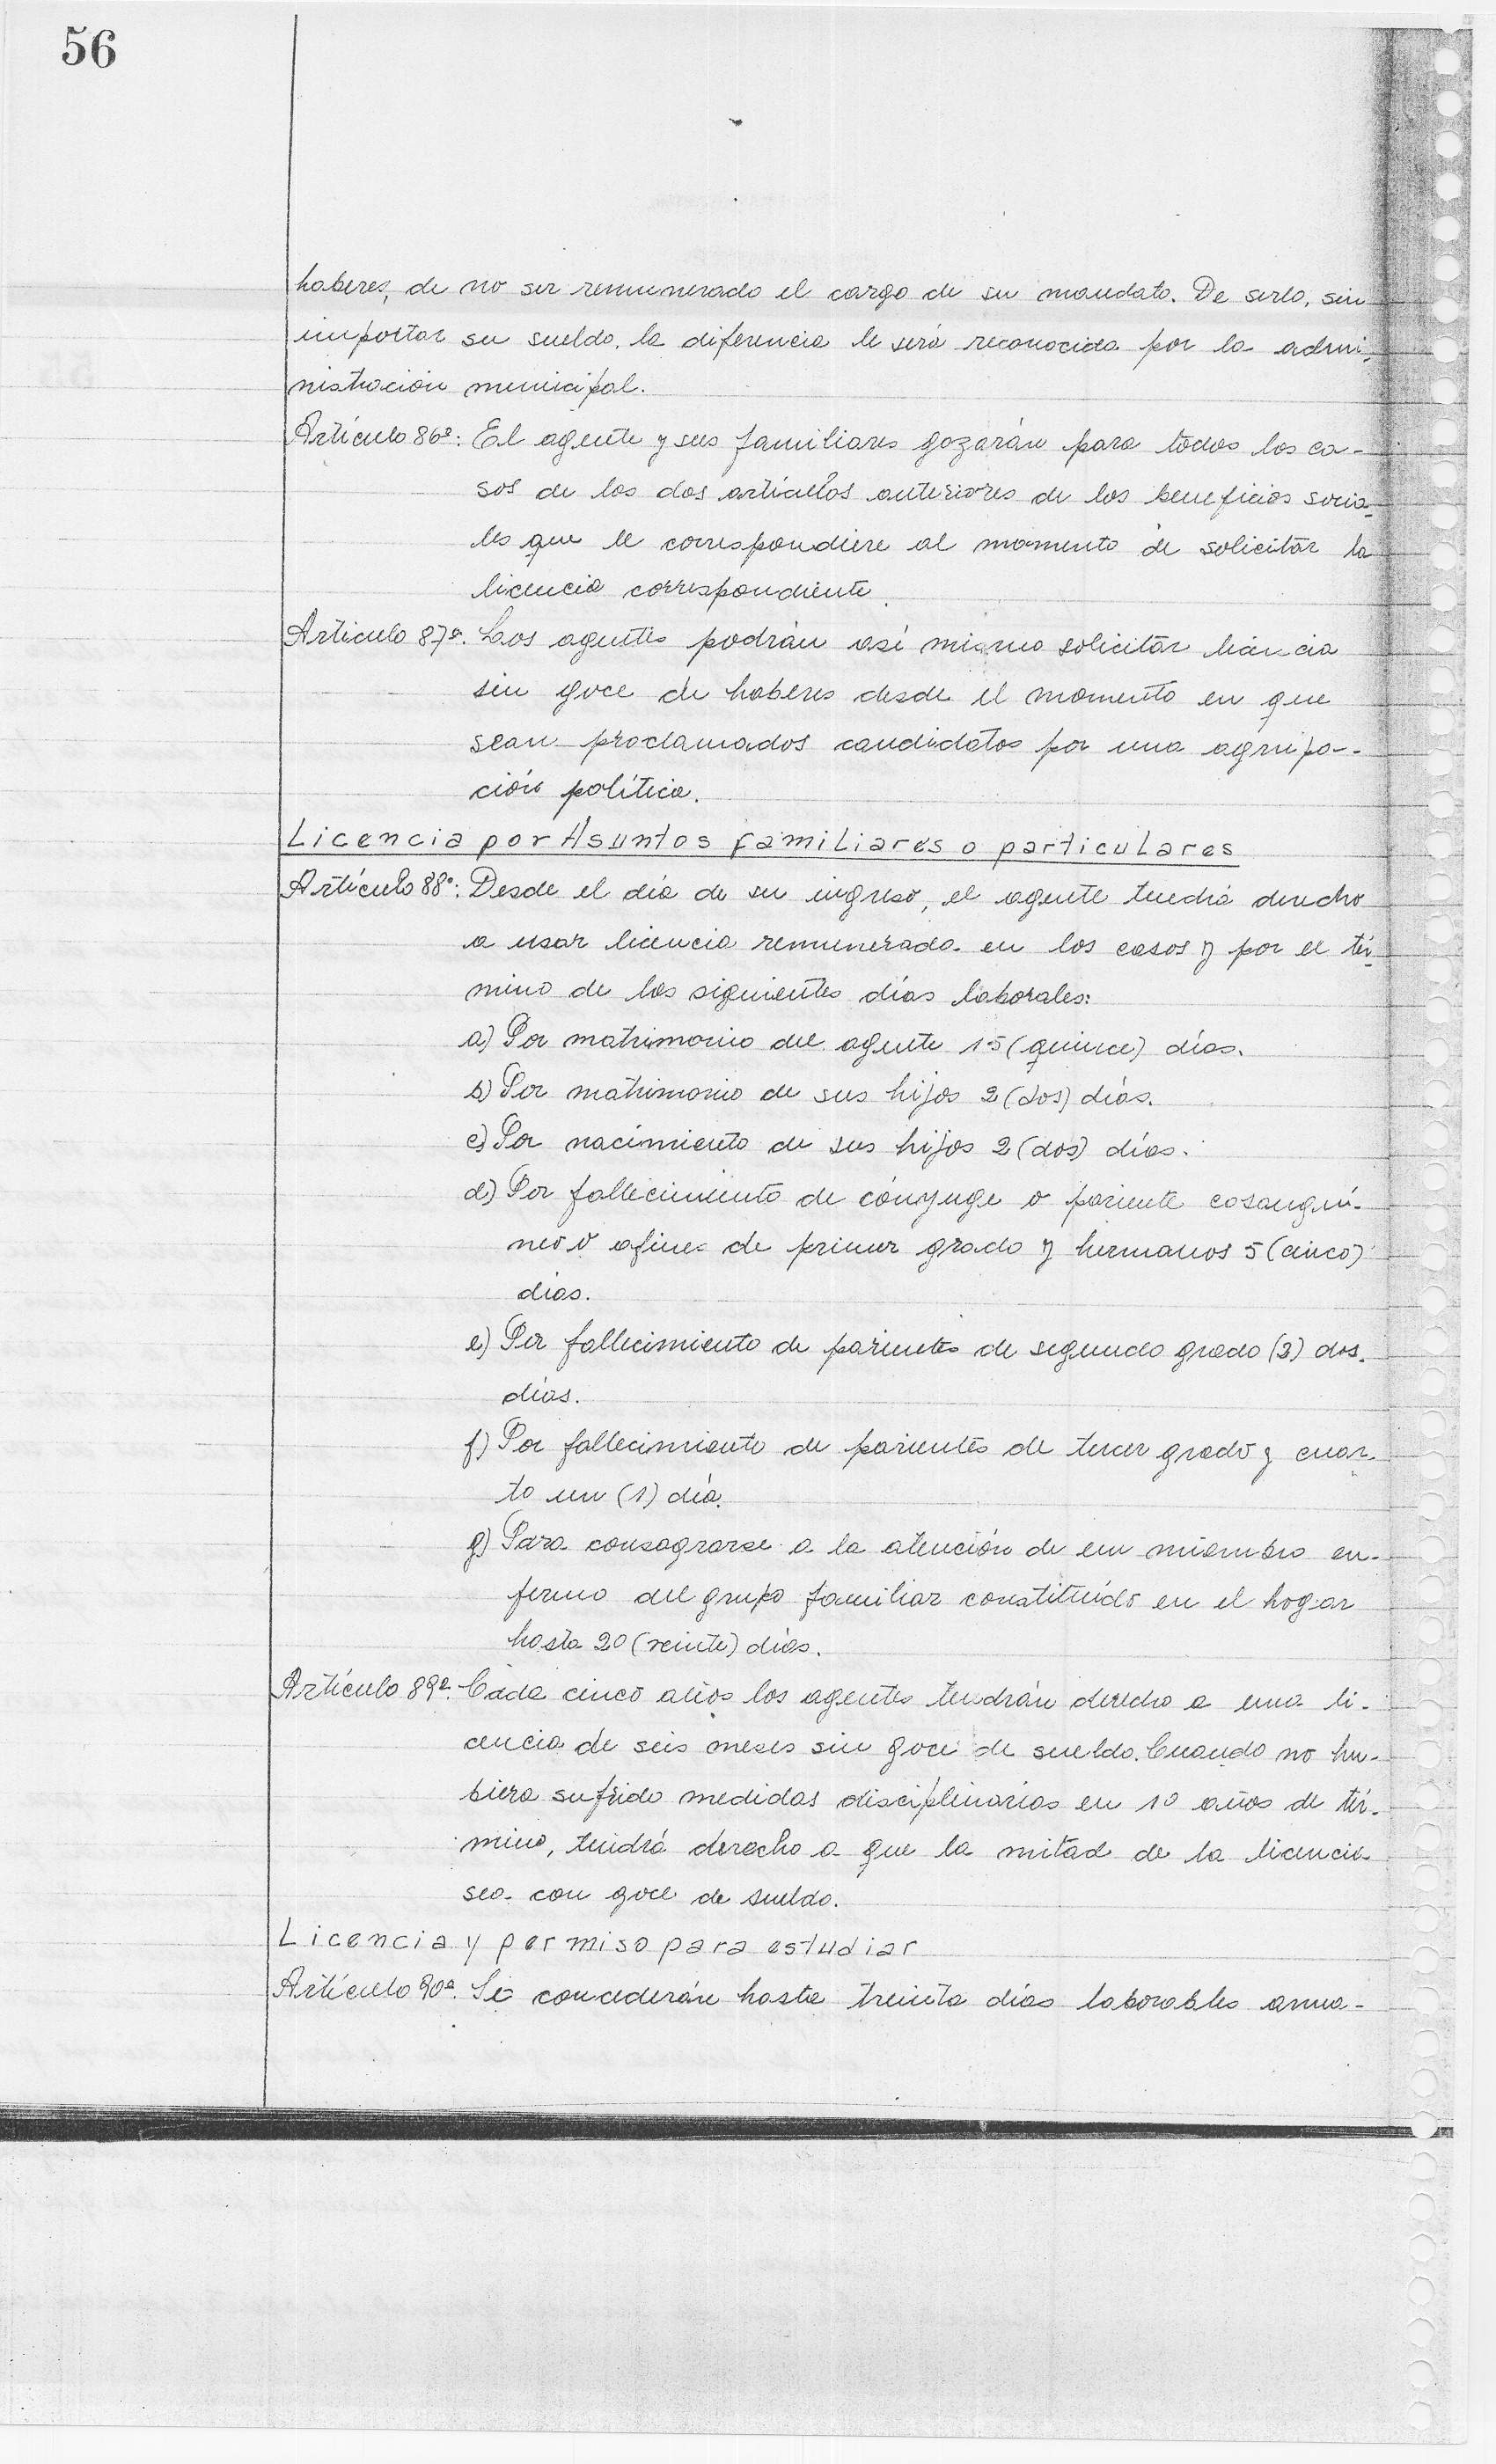 56
haberes, de no ser remunerado el cargo de su mandato. De serlo, sin
importar su sueldo, la diferencia le será reconocida por la admi-
nistración municipal.
Artículo 86º: El agente y sus familiares gozarán para todos los ca-
sos de los dos artículos anteriores de los beneficios socia-
les que le correspondiere al momento de solicitar la
licencia correspondiente.
Artículo 87º. Los agentes podrán así mismo solicitar licencia
sin goce de haberes desde el momento en que
sean proclamados candidatos por una agrupa-
ción política.
Licencia por Asuntos familiares o particulares
Artículo 88º: Desde el día de su ingreso, el agente tendrá derecho
a usar licencia remunerada en los casos y por el tér-
mino de los siguientes días laborales:
a) Por matrimonio del agente 15 (quince) días.
b) Por matrimonio de sus hijos 2 (dos) días.
c) Por nacimiento de sus hijos 2 (dos) días.
d) Por fallecimiento de cónyuge o pariente cosanguí-
neo o afines de primer grado y hermanos 5 (cinco)
días.
e) Por fallecimiento de parientes de segundo grado (2) dos
días.
f) Por fallecimiento de parientes de tercer grado y cuar-
to un (1) día.
g) Para consagrarse a la atención de un miembro en-
fermo del grupo familiar constituído en el hogar
hasta 20 (veinte) días.
Artículo 89º. Cada cinco años los agentes tendrán derecho a una li-
cencia de seis meses sin goce de sueldo. Cuando no hu-
biera sufrido medidas disciplinarias en 10 años de tér-
mino, tendrá derecho a que la mitad de la licencia
sea con goce de sueldo.
Licencia y permiso para estudiar
Artículo 90º. Se concederán hasta treinta días laborables anua-